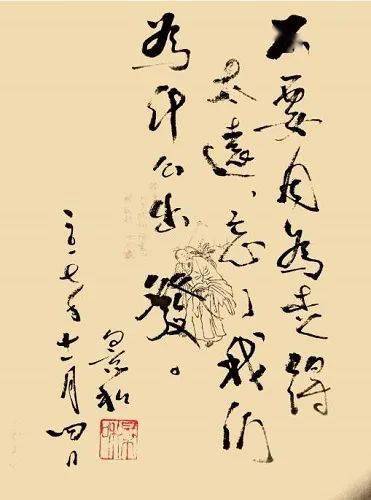 不要因為走得
太遠、忘了我們
為什么出發。
景和
二〇一七年十一月四日